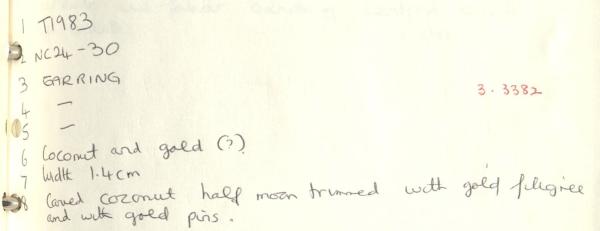 1 T1983
2 NC24-30
3 EARRING
3.3382
4 —
5 —
6 Coconut and gold (?)
7 Width 1.4cm
8 Carved coconut half moon trimmed with gold filigree
and with gold pins.